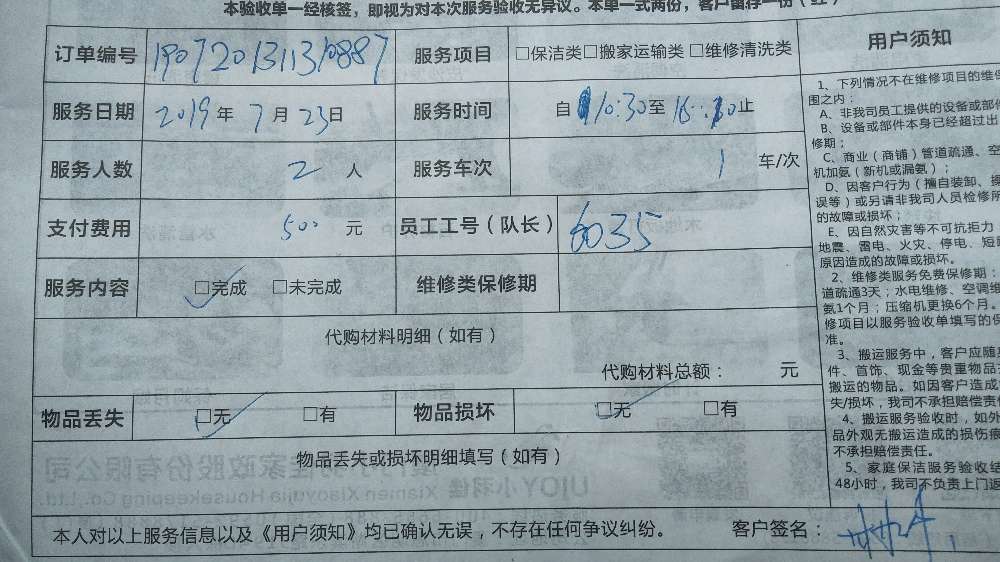 本验收单一经核签，即视为对本次服务验收无异议。本单一式两份，客户留存一份（
订单编号 1907201311310887 服务项目 □保洁类□搬家运输类 □维修清洗类
服务日期 2019年 7月 23日 服务时间 自 10:30至 16:30止
服务人数 2 人 服务车次 1 车/次
支付费用 500 元 员工工号（队长） 6035
服务内容 □完成 □未完成 维修类保修期
代购材料明细（如有）
代购材料总额： 元
物品丢失 □无 □有 物品损坏 □无 □有
物品丢失或损坏明细填写（如有）
本人对以上服务信息以及《用户须知》均已确认无误，不存在任何争议纠纷。 客户签名：
用户须知
1、下列情况不在维修项目的维保
围之内：
A、非我司员工提供的设备或部件
B、设备或部件本身已经超过出
修期；
C、商业（商铺）管道疏通、空
机加氨（新机或漏氨）；
D、因客户行为（擅自装卸、搬
误等）或另请非我司人员检修所
的故障或损坏；
E、因自然灾害等不可抗拒力
地震、雷电、火灾、停电、短路
原因造成的故障或损坏。
2、维修类服务免费保修期：
道疏通3天；水电维修、空调维
氨1个月；压缩机更换6个月。
修项目以服务验收单填写的保
准。
3、搬运服务中，客户应随
件、首饰、现金等贵重物品
搬运的物品。如因客户造成
失/损坏，我司不承担赔偿责任
4、搬运服务验收时，如外
品外观无搬运造成的损伤痕
不承担赔偿责任。
5、家庭保洁服务验收结
48小时，我司不负责上门返